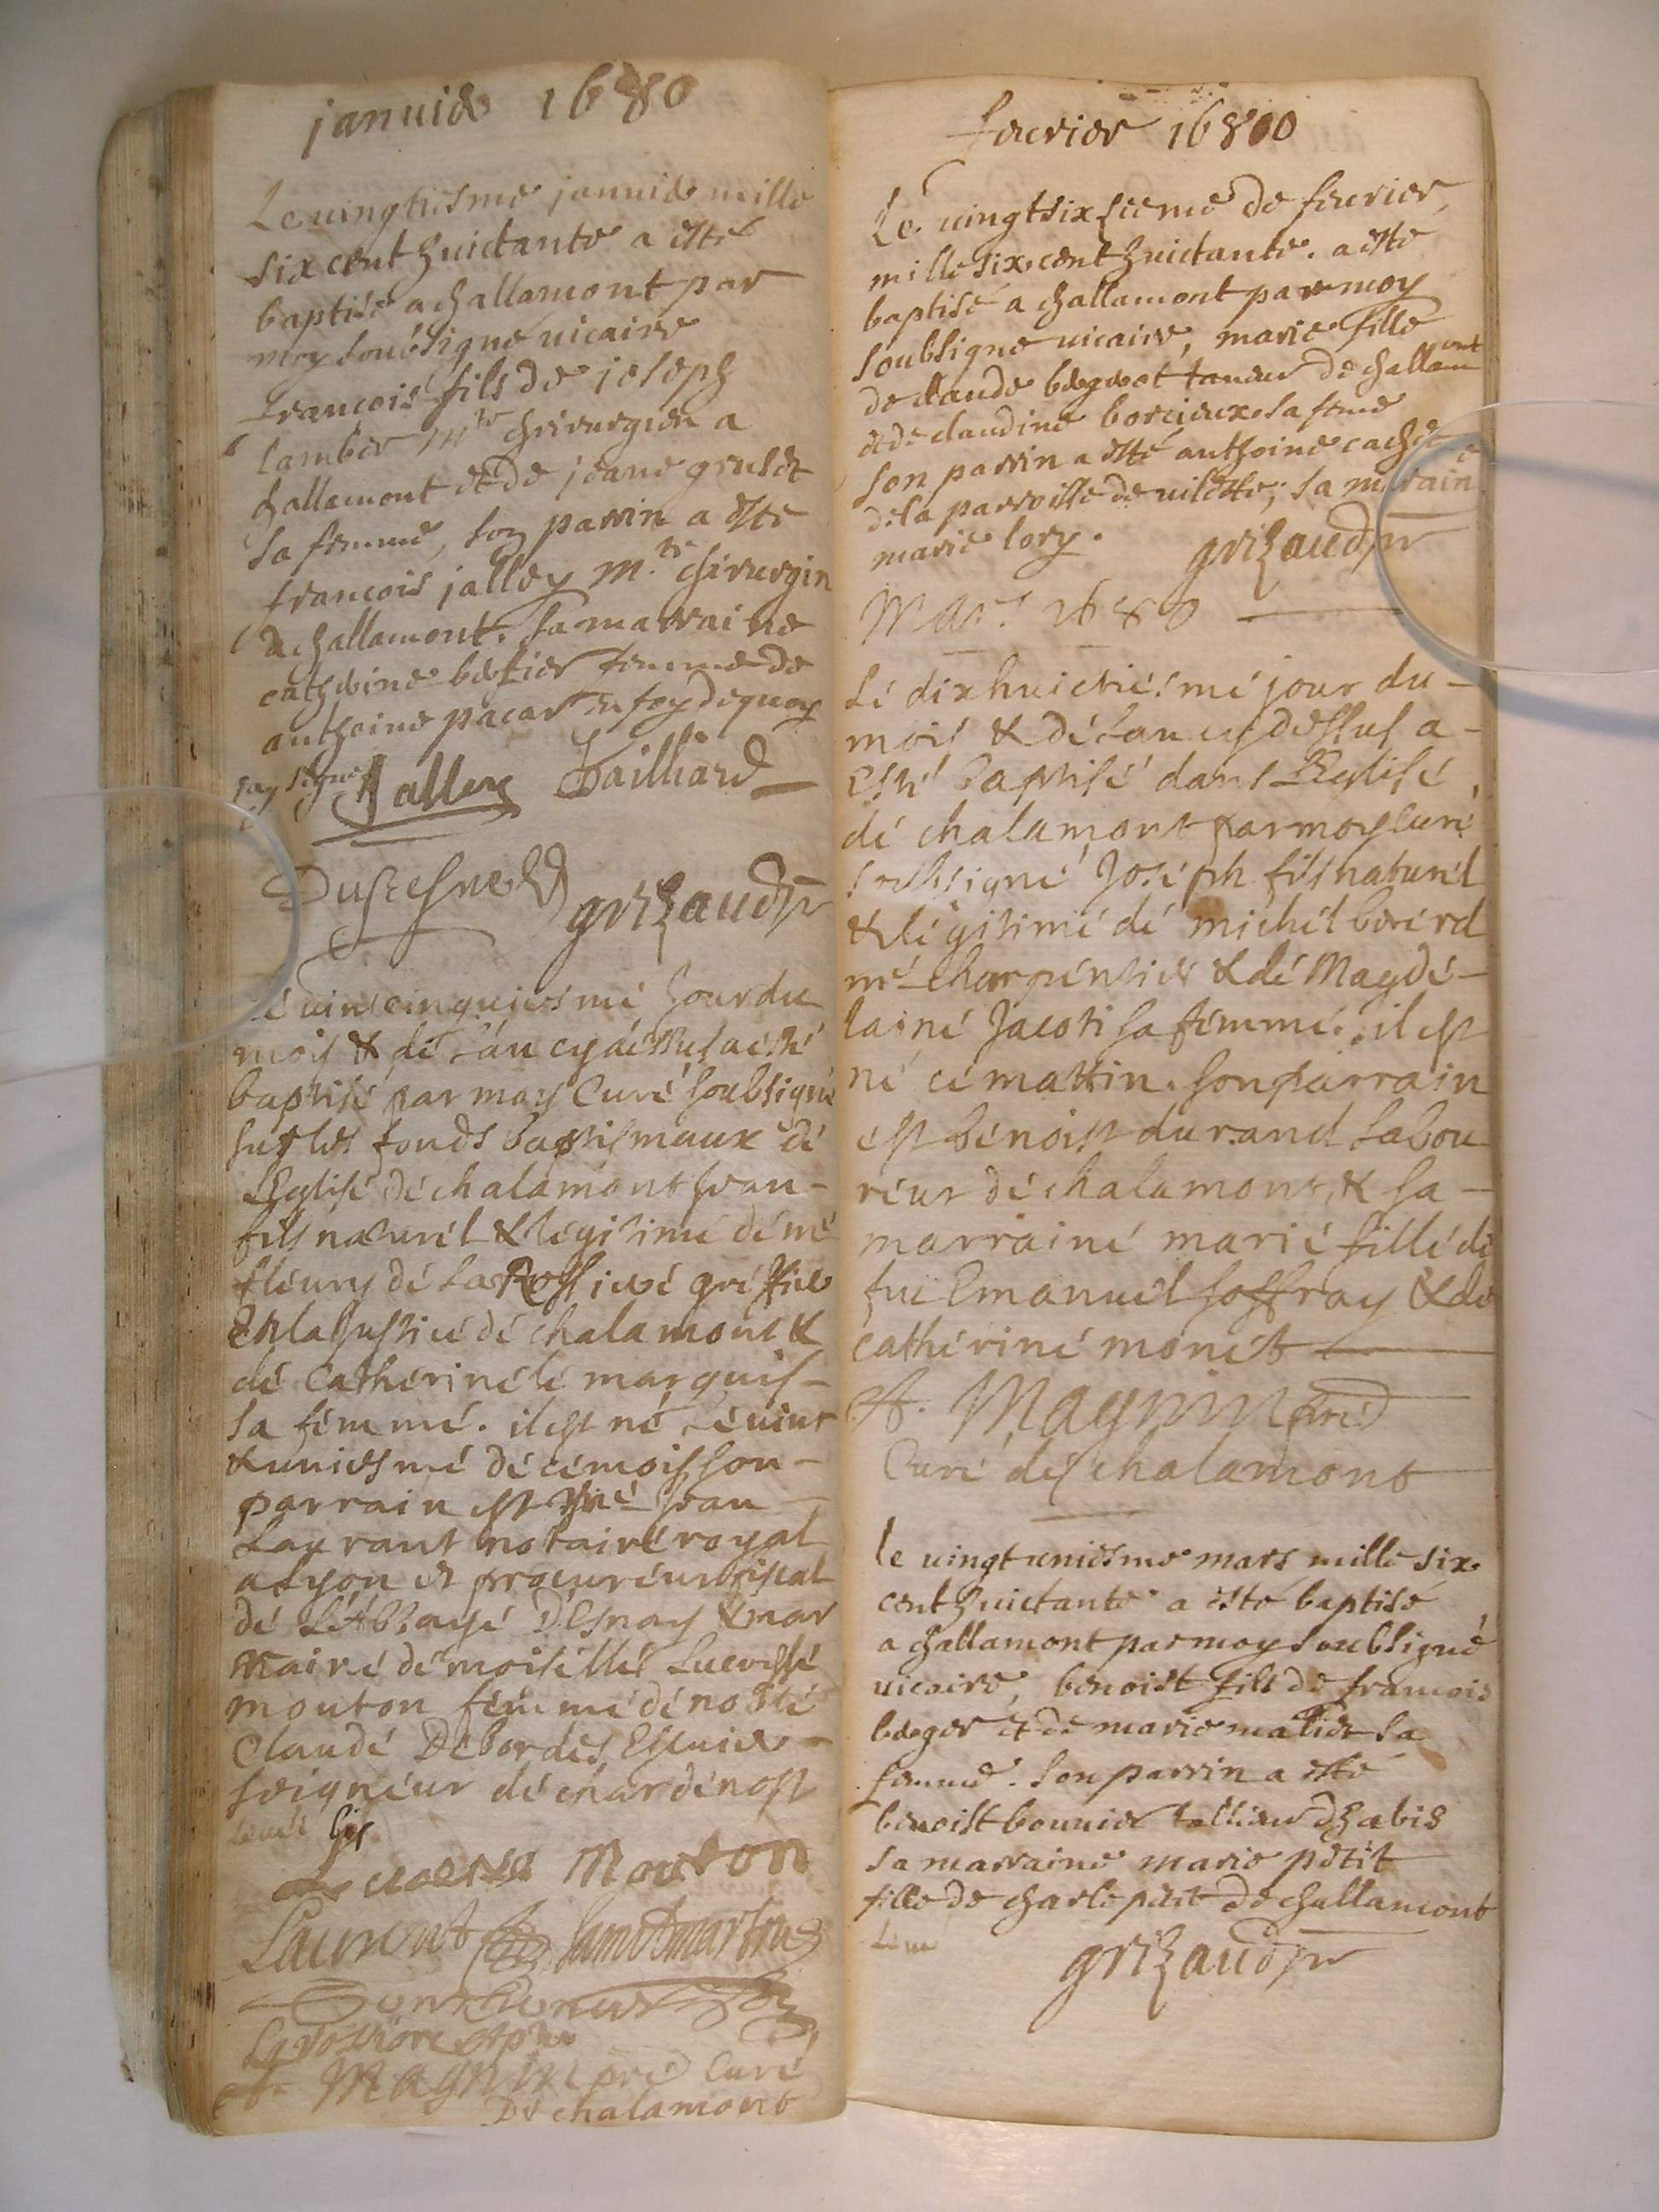 januier 1680
Le uingtiesme januier mille
six cent huictante a esté
baptisé a challamont par
moy soubsigné uicaire
francois fils de joseph
lamber mtre chirurgien a
challamont et de jeane
sa femme, son parrin a esté
francois jalley m.tre chirurgin
a challamont. sa marraine
catherine femme de
anthoine pacar en foy de quoy
jay signé Jalley Bailliard
grizaud ptre
Le vint cinquiesmé Jour du
mois & dé L'an cy déssus a esté
baptisé par moy Curé soubsigné
sur lés fonds baptismaux dé
L'Eglisé dé chalamont Jean
fils naturél & légitimé dé mé
fléury dé La Rossieré gréffier
En la Justicé dé chalamont &
dé Cathériné lé marquis
sa fémmé. il est né Lé vint
& uniesmé dé cé mois, son
parrain est mé Jean
Laurant notairé royal
a Lyon et procuréur fiscal
dé L'Abbayé D'Esnay & mar
rainé démoiséllé Lucressé
mouton fémmé dé noblé
Claudé Debordes, Escuier
seignéur dé chardénost
Mouton
Laurent
A. Magnin pré Curé
De chalamont
feurier 1680
Le uingt sixsieme de feurier
mille six cent huictante. a esté
baptisé a challamont par moy
soubsigné uicaire, marie fille
de claude taneur de challamont
et de claudine borcieux sa feme
son parrin a esté anthoine
de la parroisse de uilette; sa maraine
marie lory. grizaud ptre
Mars 1680
Lé dixhuictiésmé jour du
mois & dé L'an cy déssus a
Esté baptisé dans L'Eglisé
dé chalamont par moy curé
soubsigné Joséph fils naturél
& légitimé dé michél bérérd
mé charpéntier & dé Magdé-
lainé Jacoti sa fémmé. il est
né cé mattin. son parrain
ést bénoist durand Labou
réur dé chalamont, & sa
marrainé marié fillé dé
fue Emanuél soffray & de
cathériné monét
A. Magnin pré
Curé dé chalamont
le uingt uniesme mars mille six
cent huictante a esté baptisé
a challamont par moy soubsigné
uicaire, benoist fils de francois
berger et de marie sa
femme. Son parrin a esté
benoist bounier tallieur dhabis
sa marraine marie petit
fille de charle petit de challamont
grizaud ptre